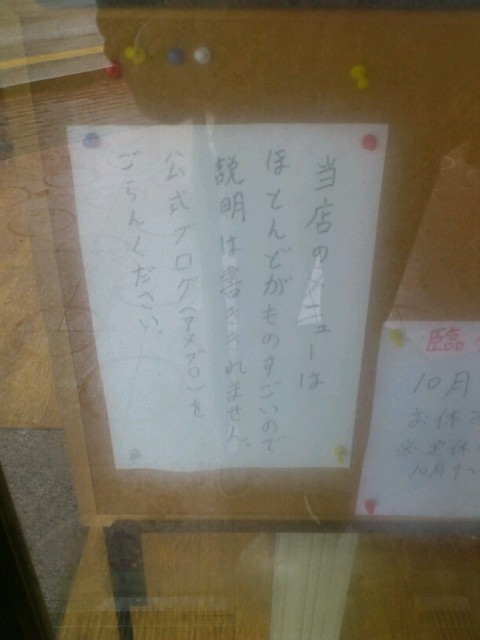 当店のメニューは
ほとんどがものすごいので
説明は書ききれません。
公式ブログ(アメブロ)を
ごらんください。
臨
10月
お休
※定休
10月9〜